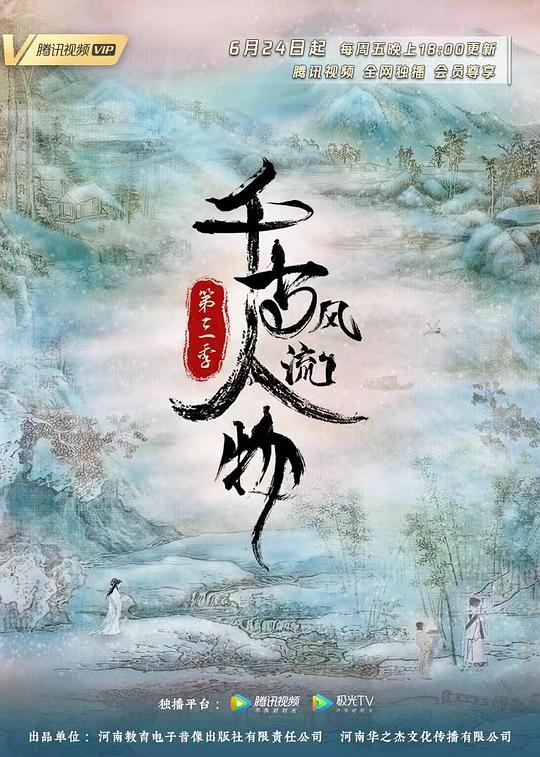 腾讯视频 VIP
6月24日起 每周五晚上18:00更新
腾讯视频 全网独播 会员尊享
千古风流人物
第三季
独播平台： 腾讯视频 不负好时光 极光TV
出品单位：河南教育电子音像出版社有限责任公司 河南华之杰文化传播有限公司